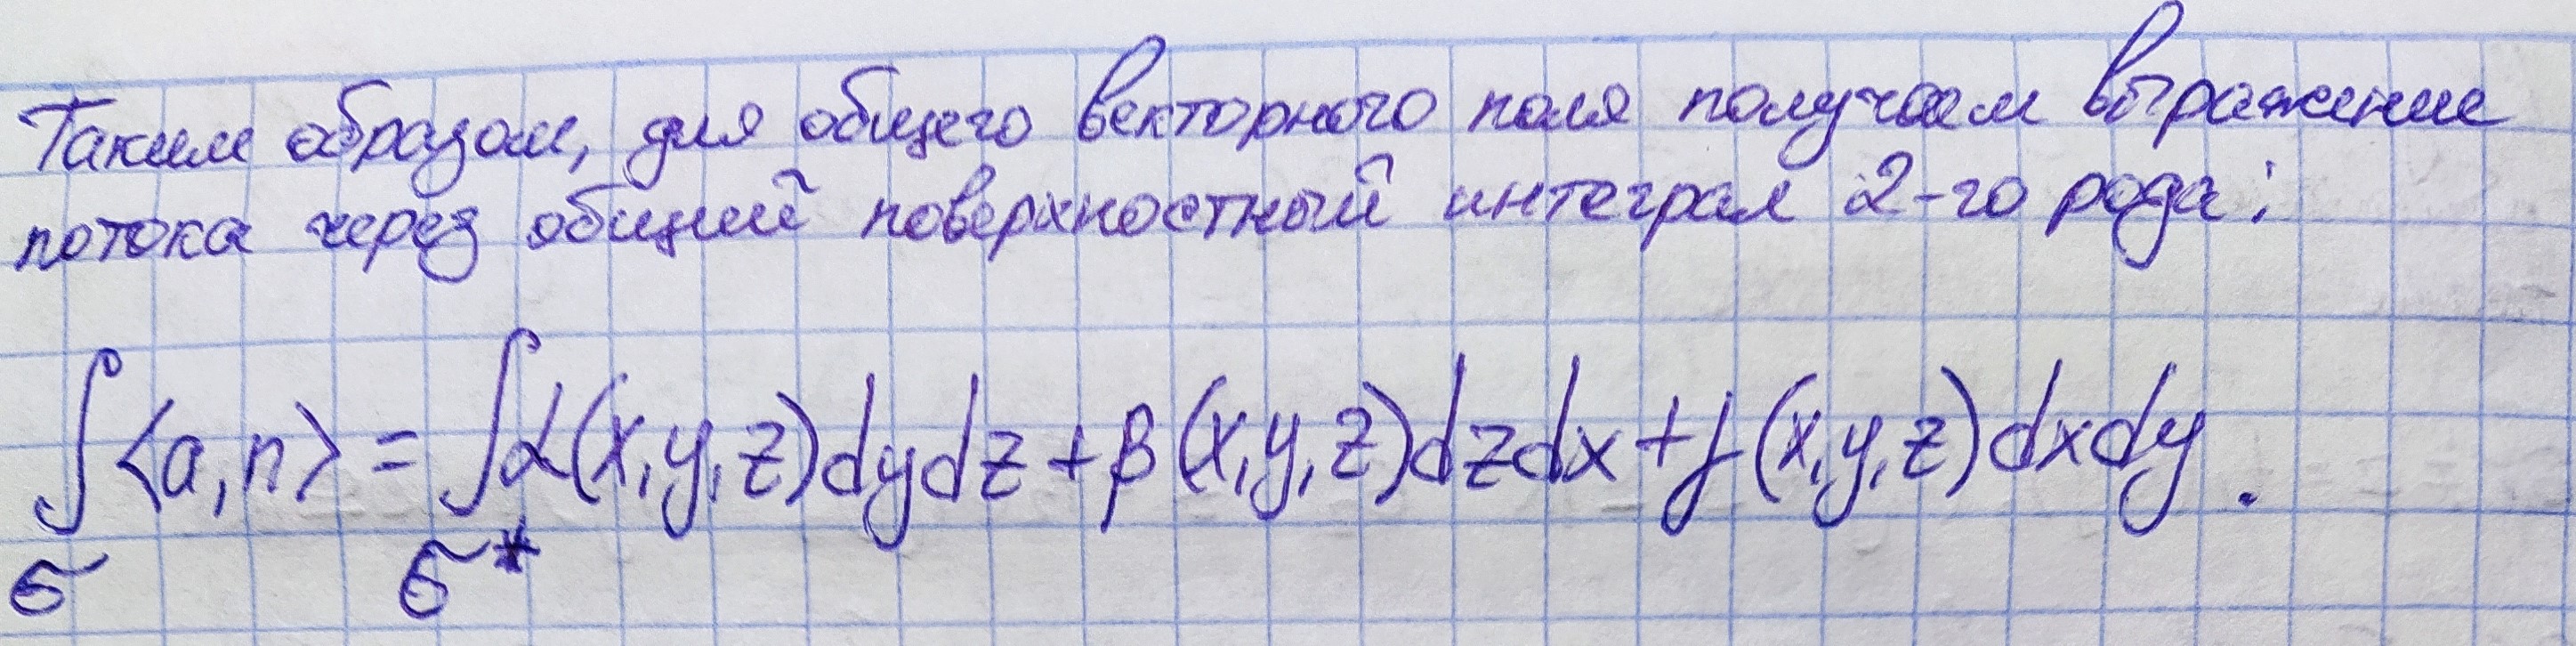 Таким образом, для общего векторного поля получаем выражение
потока через общий поверхностный интеграл 2-го рода:
∫⟨a,n⟩ = ∫α(x,y,z)dydz+β(x,y,z)dzdx+γ(x,y,z)dxdy.
σ σ*